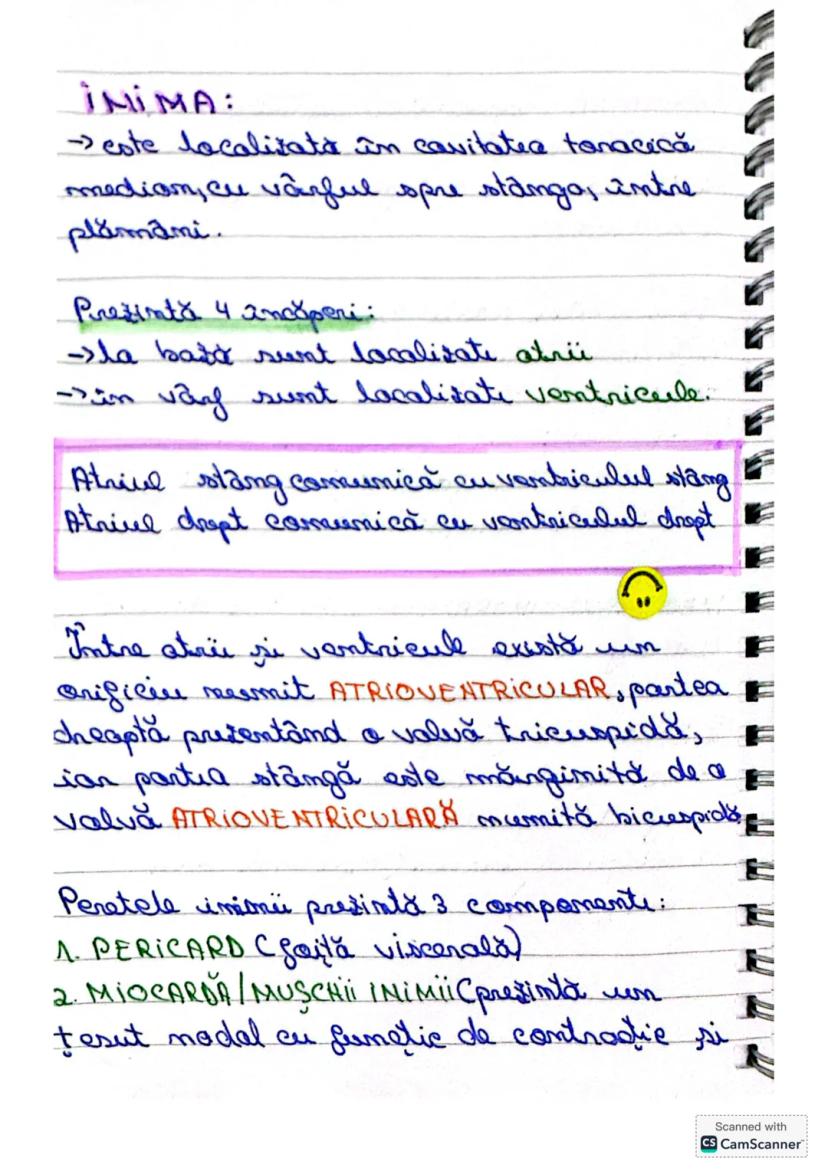 INIMA:
→ este localizată în cavitatea toracică
median, cu vârful spre stânga, între
plămâni.
Prezintă 4 încăperi:
→ la bază sunt localizate atrii
→ în vârf sunt localizate ventricule.
Atriul stâng comunică cu ventriculul stâng
Atriul drept comunică cu ventriculul drept
Între atrii și ventricule există un
orificiu numit ATRIOVENTRICULAR, partea
dreaptă prezentând o valvă tricuspidă,
iar partea stângă este mărginită de o
valvă ATRIOVENTRICULARĂ numită bicuspidă
Peretele inimii prezintă 3 componente:
1. PERICARD (foiță viscerală)
2. MIOCARDĂ/MUȘCHII INIMII (prezintă un
țesut nodal cu funcție de contracție și
Scanned with
CS CamScanner